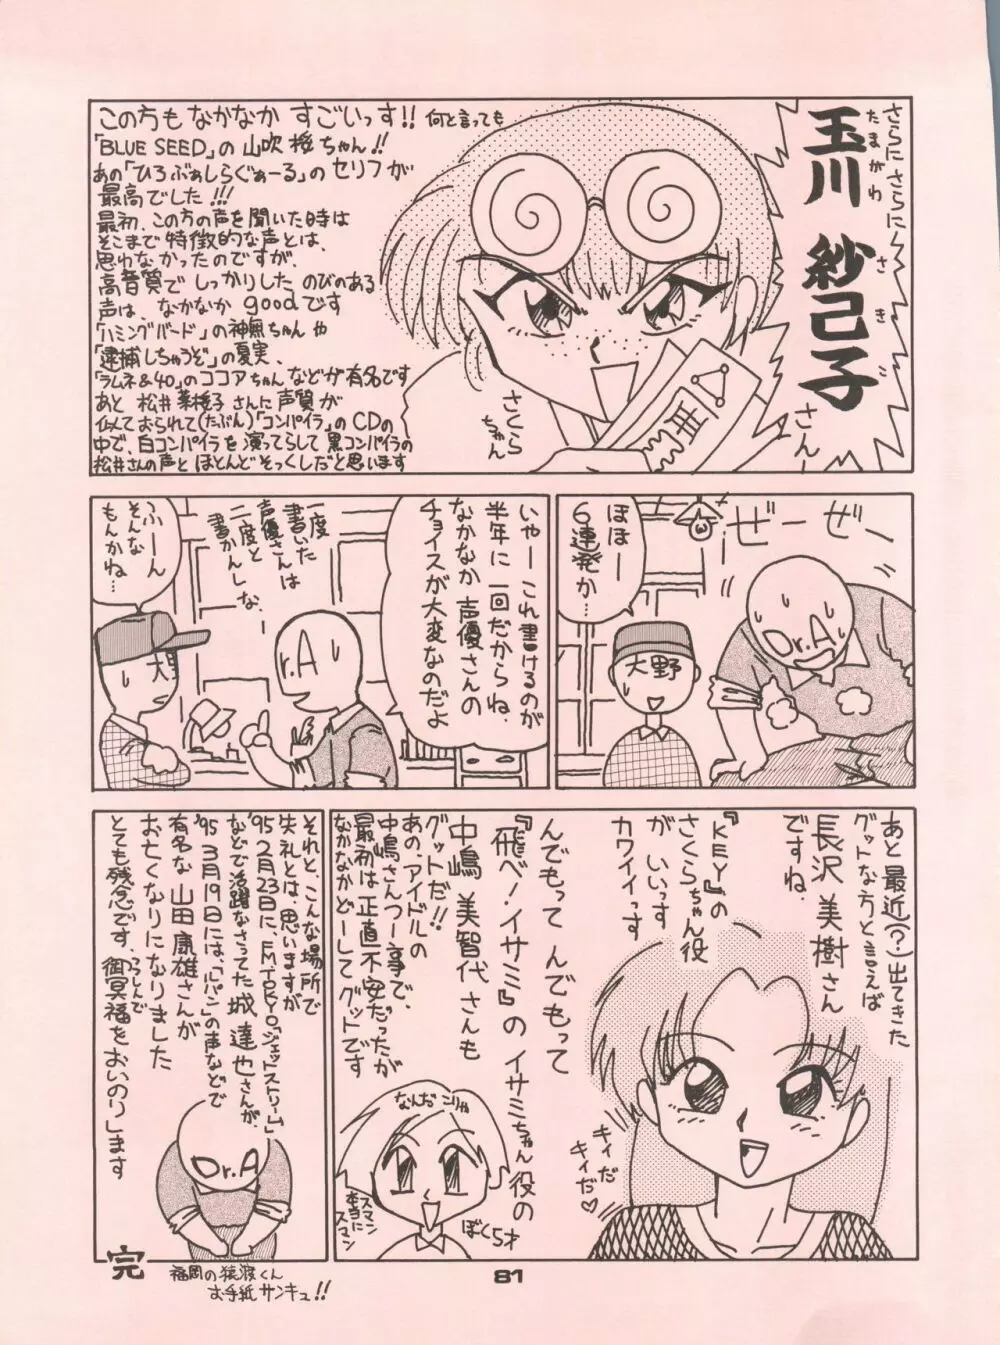 さらにさらに
玉川 紗己子
たまがわ さきこ
さんー
この方も なかなか すごいっす!! 何と言っても
「BLUE SEED」の 山吹 桜ちゃん!!
あの「ひろぶぁしらぐぁーる」の セリフが
最高でした!!!
最初、この方の声を聞いた時は
そこまで 特徴的な声とは、
思わなかったのですが、
高音質で しっかりした のびのある
声は なかなか goodです
「ハミングバード」の神無ちゃん や
「逮捕しちゃうぞ」の夏実、
「ラムネ&40」の ココアちゃん などが有名です
あと 松井 菜桜子 さんに 声質が
似ておられて(たぶん)「コンパイラ」の CDの
中で、白コンパイラ を 演ってらして 黒コンパイラの
松井さんの声と ほとんど そっくしだと思います
さくら
ちゃん
ぜーぜー
ほほー
6連発か…
Dr.A
大野
いやーこれ書けるのが
半年に 一回だからね、
なかなか 声優さんの
チョイスが大変なのだよ
一度
書いた
声優さんは
二度と
書かんしな、ー
Dr.A
ふーん
そんな
もんかね…
大野
あと 最近(?)出てきた
グットな方と言えば
長沢 美樹さん
ですね、
『KEY』の
さくらちゃん役
が いいっす
カワイイっす
キィだ
キィだ♡
んでもって んでもって
『飛べ!イサミ』の イサミちゃん役の
中嶋 美智代さんも
グットだ!!
あの、アイドルの
中嶋さんつー事で、
最初は 正直 不安だったが
なかなかどーして グットです
なんだ こりゃ
スマン
本当に
スマン
ぼく5才
それと、こんな 場所で
失礼とは、思いますが
'95 2月23日に、F.M.TOKYO「ジェットストリーム」
などで 活躍なさってた 城 達也さんが、
'95 3月19日には、「ルパン」の声などで
有名な 山田 康雄さんが
お亡くなりになりました
とても残念です、つつしんで
御冥福を おいのりします
Dr.A
完
福岡の猿渡くん
お手紙 サンキュ!!
81